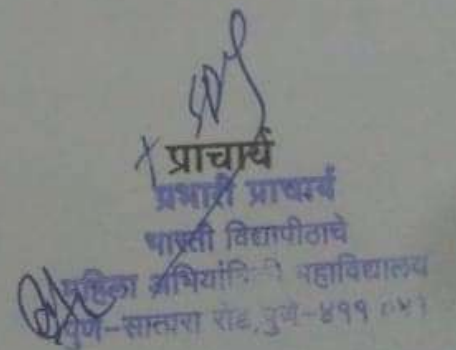 प्राचार्य
प्रभारी प्राचार्य
भारती विद्यापीठाचे
महिला अभियांत्रिकी महाविद्यालय
पुणे-सातारा रोड, पुणे-४११ ०४३